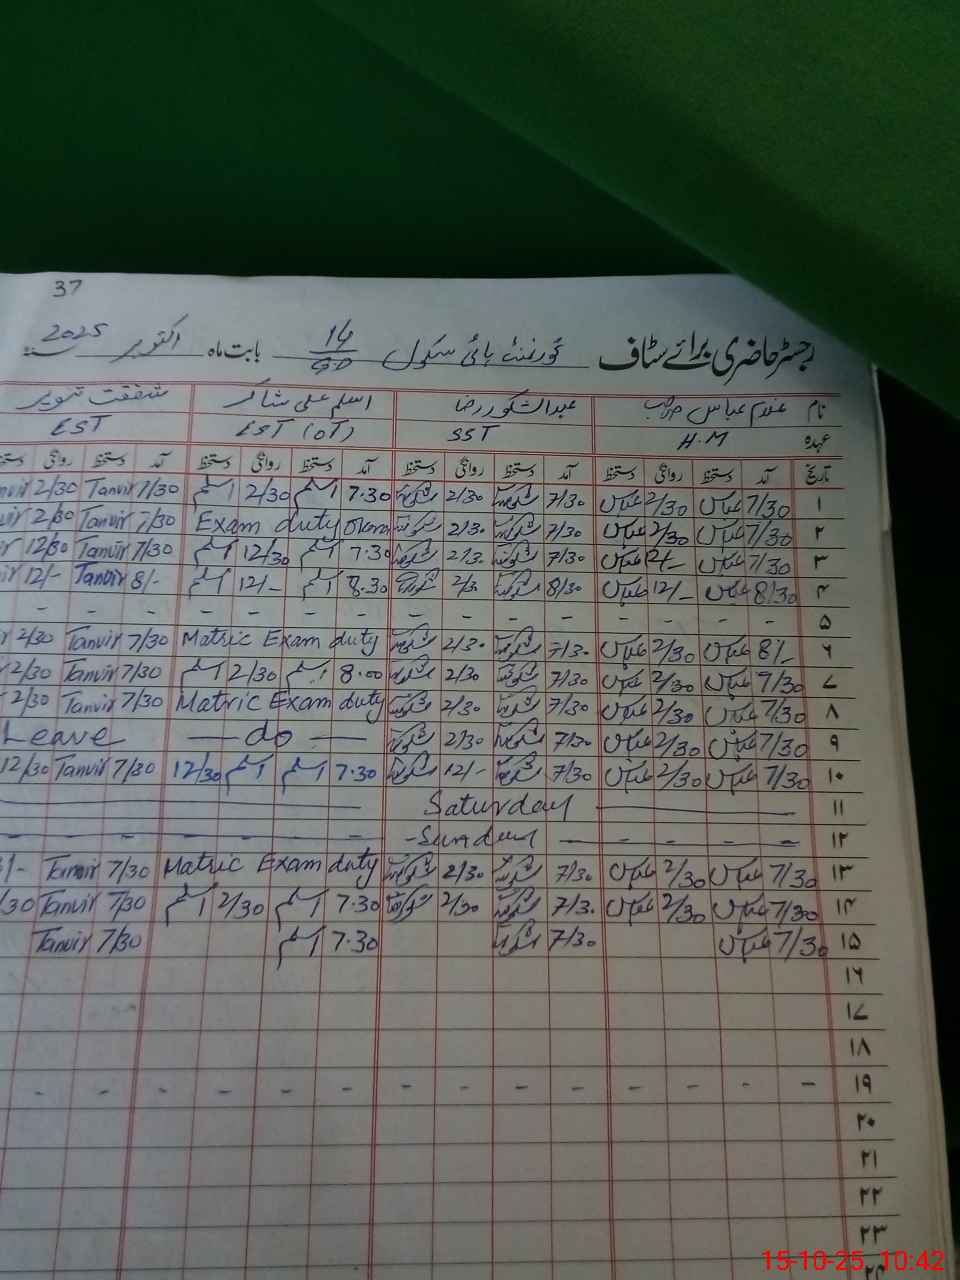 37
رجسٹر حاضری برائے سٹاف گورنمنٹ ہائی سکول 14/GD بابت ماہ اکتوبر 2025
نام غلام عباس صاحب عبدالشکور رضا اسلم علی شاکر شفقت تنویر
عہدہ H.M SST EST (OT) EST
تاریخ آمد دستخط روانگی دستخط آمد دستخط روانگی دستخط آمد دستخط روانگی دستخط آمد دستخط روانگی
۱ 7/30 عباس 2/30 عباس 7/30 2/30 7.30 اسلم 2/30 اسلم 7/30 Tanvir 2/30
۲ 7/30 عباس 2/30 عباس 7/30 2/30 Exam duty 7/30 Tanvir 2/30
۳ 7/30 عباس 12/- عباس 7/30 2/30 7.30 اسلم 12/30 اسلم 7/30 Tanvir 12/30
۴ 8/30 عباس 12/- عباس 8/30 2/30 8.30 اسلم 12/- اسلم 8/- Tanvir 12/-
۵ - - - - - - - - - - -
۶ 8/- عباس 2/30 عباس 7/30 2/30 Matric Exam duty 7/30 Tanvir 2/30
۷ 7/30 عباس 2/30 عباس 7/30 2/30 8.00 اسلم 2/30 اسلم 7/30 Tanvir 2/30
۸ 7/30 عباس 2/30 عباس 7/30 2/30 Matric Exam duty 7/30 Tanvir 2/30
۹ 7/30 عباس 2/30 عباس 7/30 2/30 — do — Leave
۱۰ 7/30 عباس 2/30 عباس 7/30 12/- 7.30 اسلم اسلم 12/30 7/30 Tanvir 12/30
۱۱ Saturday
۱۲ - - - - Sunday - - - - - -
۱۳ 7/30 عباس 2/30 عباس 7/30 2/30 Matric Exam duty 7/30 Tanvir
۱۴ 7/30 عباس 2/30 عباس 7/30 2/30 7.30 اسلم 2/30 اسلم 7/30 Tanvir
۱۵ 7/30 عباس 7/30 7.30 اسلم 7/30 Tanvir
۱۶
۱۷
۱۸
۱۹ - - - - - - - - - - - - - -
۲۰
۲۱
۲۲
۲۳
15-10-25 10:42